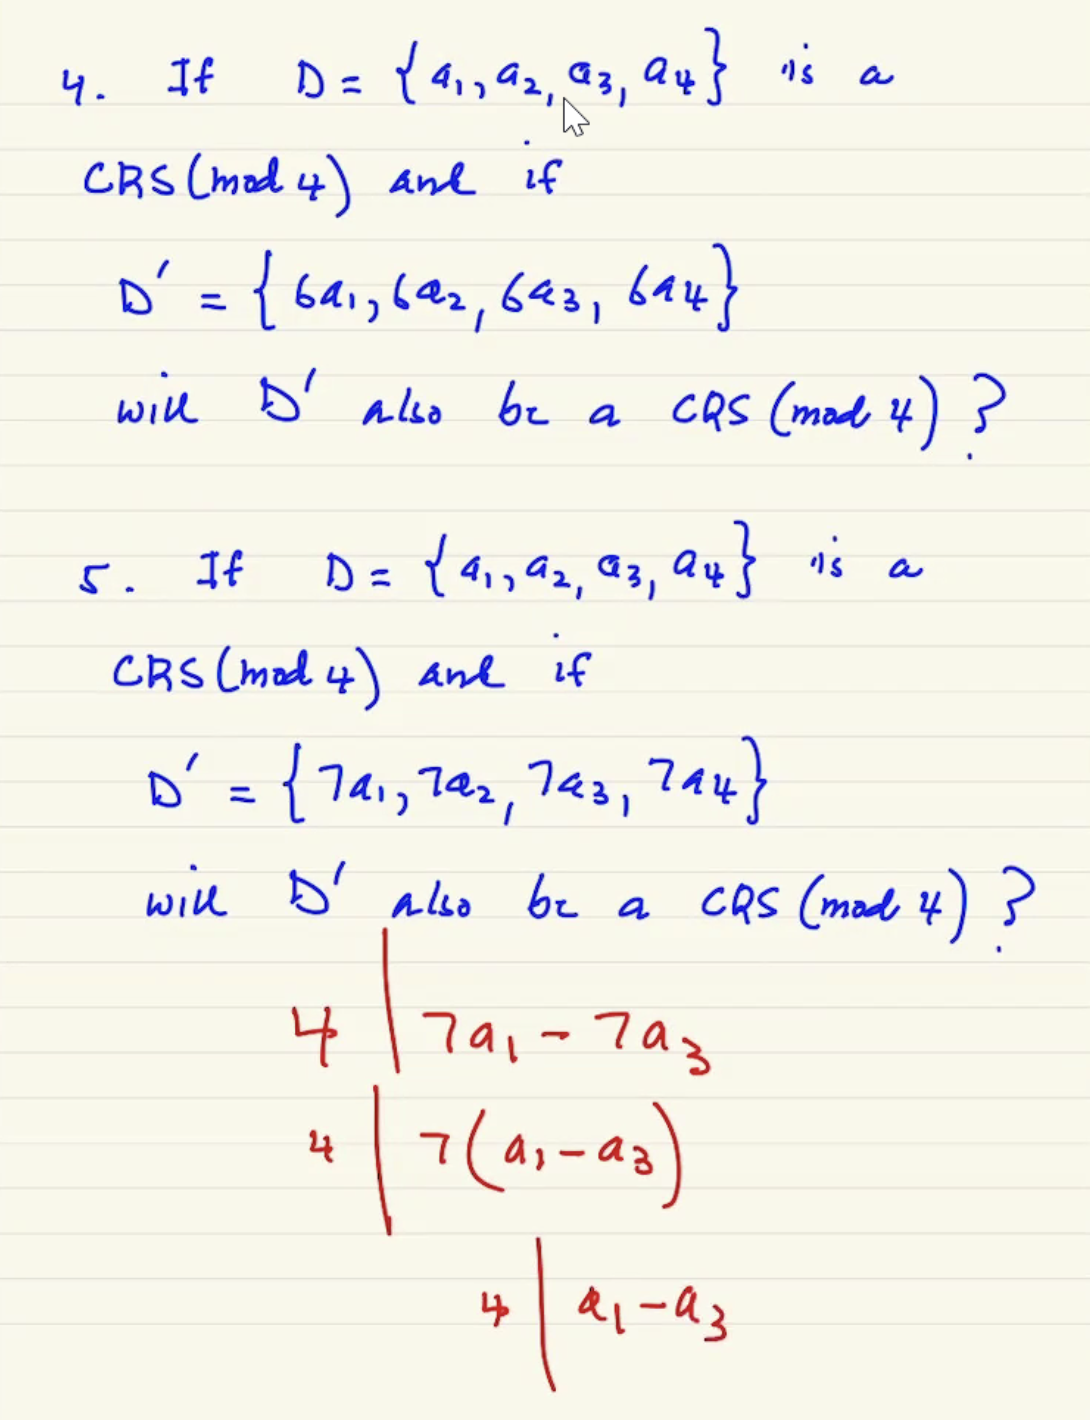 4. If D = {a₁, a₂, a₃, a₄} is a
CRS (mod 4) and if
D' = {6a₁, 6a₂, 6a₃, 6a₄}
will D' also be a CRS (mod 4) ?
5. If D = {a₁, a₂, a₃, a₄} is a
CRS (mod 4) and if
D' = {7a₁, 7a₂, 7a₃, 7a₄}
will D' also be a CRS (mod 4) ?
4 | 7a₁ - 7a₃
4 | 7(a₁ - a₃)
4 | a₁ - a₃